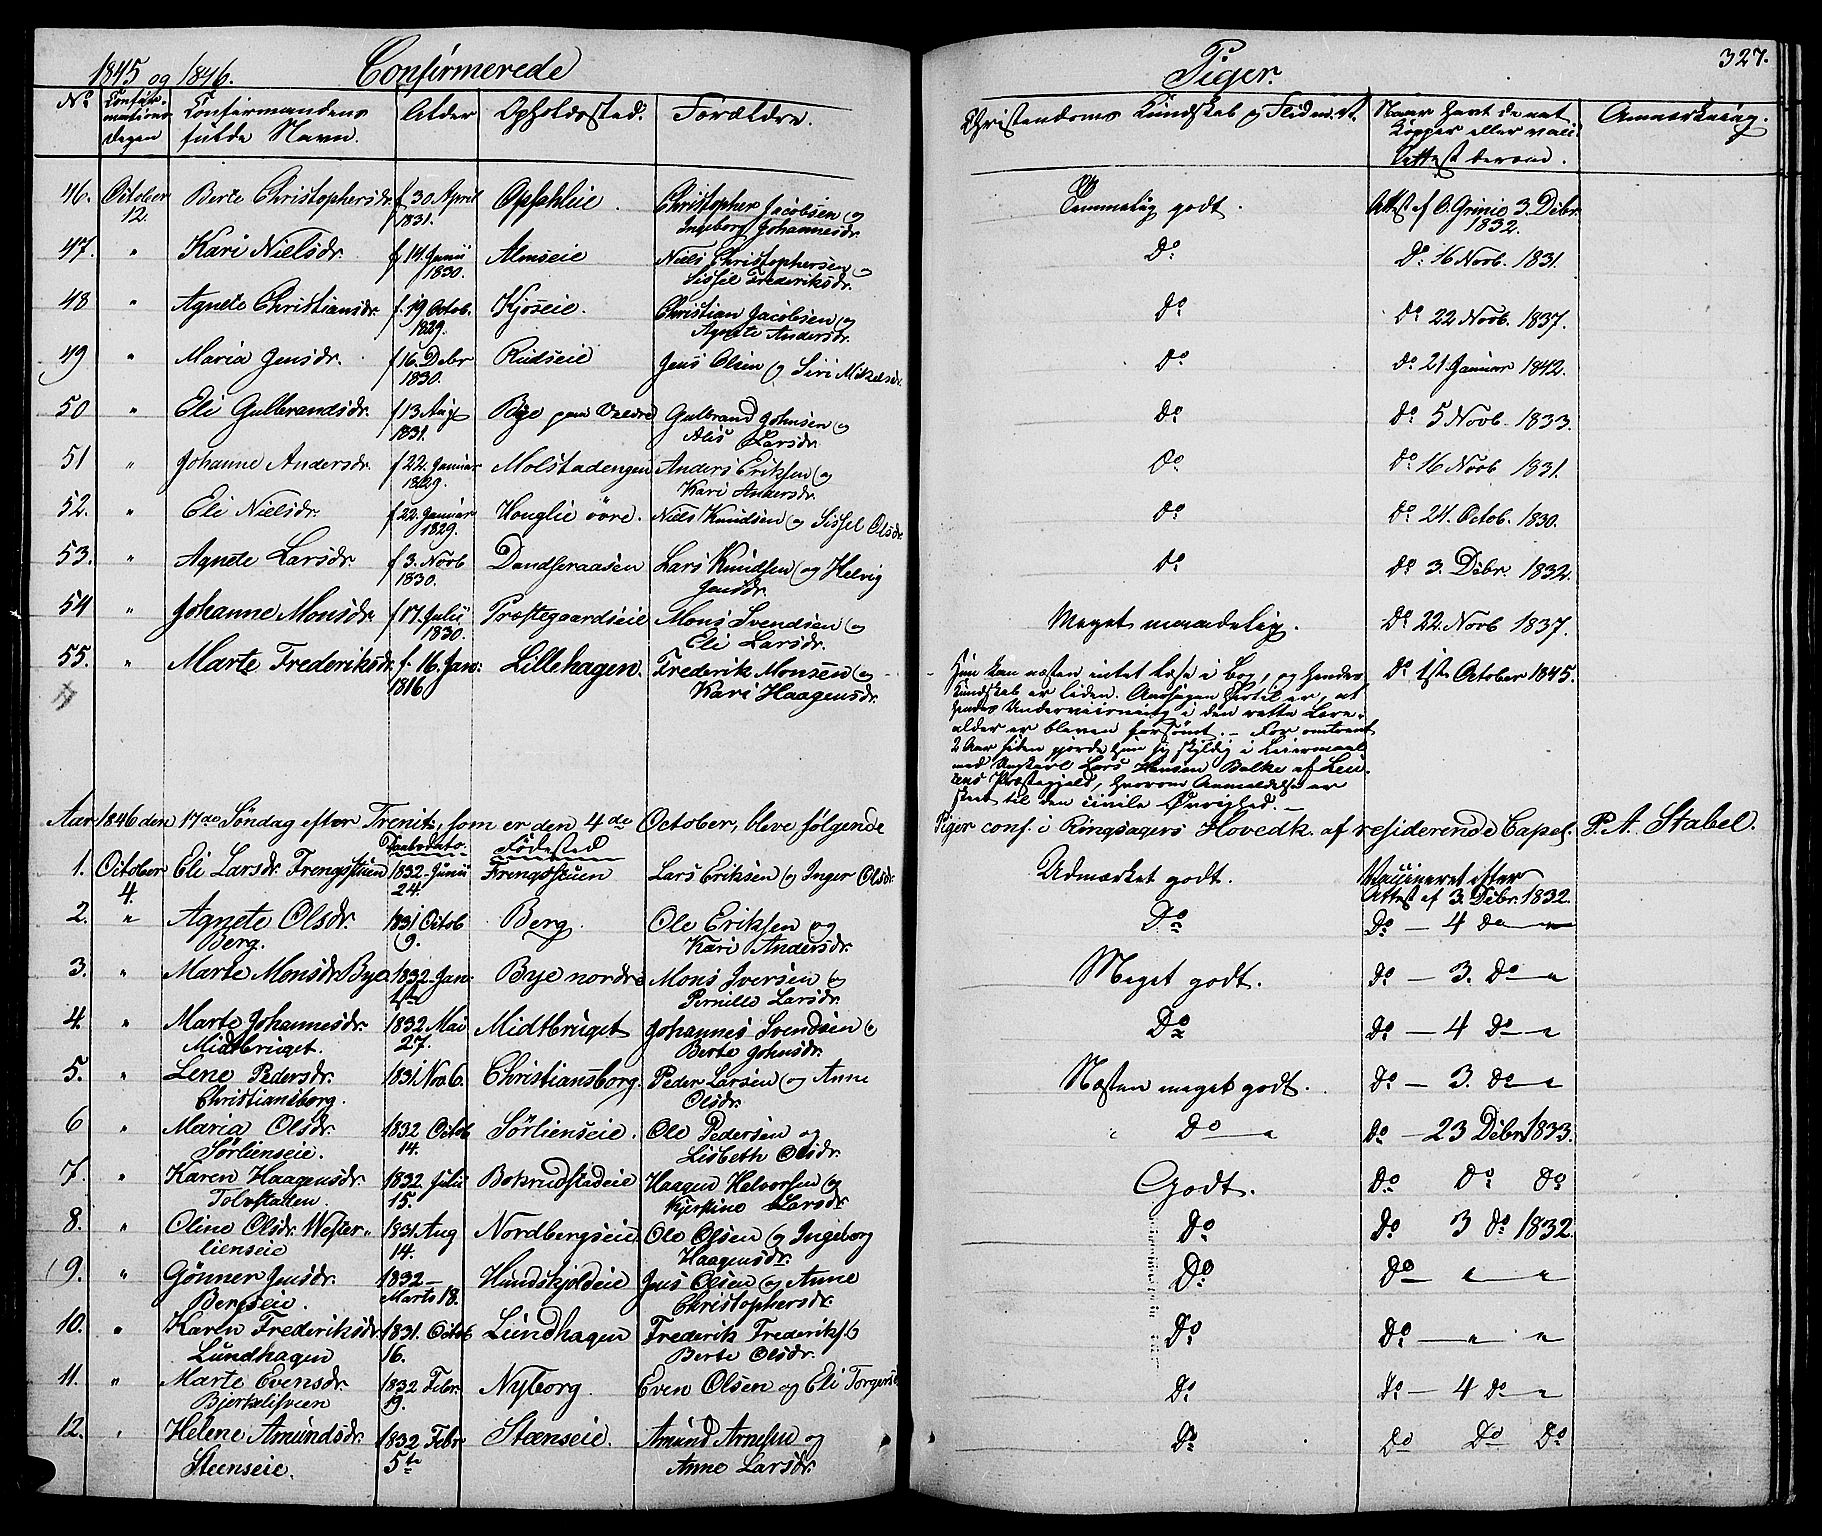 1845 og 1846. Confirmerede Piger. 327.
No Confir- Confirmandens Alder Opholdssted. Forældre. Christendoms Kundskab og Flid m. v. Naar havt de nat. Anmærkning.
mations- fulde Navn. Kopper eller vacc.
dagen Attest derom.
46. October Berte Christophersdr. f. 30 April Christopher Jacobsen og Temmelig godt. Attest af O. Grinie 3. Dcbr.
12. 1831. Ingeborg Johannesdr. 1832.
47. " Kari Nielsdr. f. 14. Junii Almseie Niels Christophersen og Do Do 16 Novb. 1831.
1830. Sissel Frederiksdr.
48 " Agnete Christiansdr. f. 19 Octob. Kjoseie. Christian Jacobsen og Do Do 22 Novb. 1837.
1829. Agnete Andersdr.
49 " Maria Jensdr. f 16. Debr Rudseie Jens Olsen og Siri Mikelsdr Do Do 21 Januar 1842.
1830.
50 " Eli Gulbrandsdr. f 13 Aug Bye paa Valdre Gulbrand Johnsen og Do Do 5 Novb. 1833.
1831. Alis Larsdr.
51 " Johanne Andersdr. f 22. Januar Molstadengen Anders Eriksen og Do Do 16 Novb 1831.
1829. Kari Andersdr.
52. " Eli Nielsdr. f 22. Januar Houglie övre. Niels Knudsen og Sissel Olsdr Do Do 24. Octob. 1830.
1829.
53. " Agnete Larsdr. f 3. Novb Dandseraasen Lars Knudsen og Helvig Do Do 3. Dcbr. 1832.
1830. Jensdr.
54 " Johanne Monsdr. f 17. Julii Præstegaardseie Mons Svendsen og Meget maadelig. Do 22. Novb 1837.
1830. Eli Larsdr.
55. " Marte Frederiksdr. f. 16. Jan: Lillehagen. Frederik Monsen og Hun kan næsten intet læse i Bog, og hendes Do 1ste October 1845.
1816 Kari Haagensdr. Kundskab er liden. Aarsagen hertil er, at
hendes Underviisning i den rette Lære-
alder er bleven forsømt. - For omtrent
2 Aar siden gjorde hun sig skyldig i Leiermaal
med Ungkarl Lars Hansen Balke af Lei-
rens Præstegjeld, hvorom Anmeldelse er
skeet til den civile Øvrighed. -
Aar 1846 den 17de Søndag efter Trenit., som er den 4de October, bleve følgende Piger conf. i Ringsagers Hovedk. af residerende Capel. P. A. Stabel.
Daabsdato. Fødested
1. October Eli Larsdr. Frengstuen 1832 Junii Frengstuen Lars Eriksen og Inger Olsdr Udmærket godt. Vaccineret efter
4. 24. Attest af 3. Dcbr. 1832.
2. " Agnete Olsdr. 1831 Octob Berg. Ole Eriksen og Do Do - 4 Do "
Berg. 9. Kari Andersdr.
3. " Marte Monsdr. Bye 1832 Jan. Bye nordre Mons Iversen og Meget godt. Do - 3. Do - "
1ste Pernille Larsdr.
4. " Marte Johannesdr. 1832 Mai Midtbruget Johannes Svendsen og Do Do - 4 Do - "
Midtbruget. 27. Berte Johnsdr.
5. " Lene Pedersdr. 1831 Nov 6. Christiansborg. Peder Larsen og Anne Næsten meget godt. Do - 3. Do - "
Christiansborg. Olsdr.
6 " Maria Olsdr. 1832 Octob Sørlienseie. Ole Pedersen og " Do - " Do - 23 Dcbr. 1833.
Sørlienseie. 14. Lisbeth Olsdr.
7. " Karen Haagensdr. 1832 Julii Bokrudstadeie Haagen Halvorsen og Godt. Do Do Do
Tolvstatten 15. Kjerstine Larsdr
8. " Oline Olsdr. Wester- 1831. Aug Nordbergseie Ole Olsen og Ingeborg Do Do 3 Do 1832.
lienseie 14. Haagensdr.
9. " Gønner Jensdr. 1832 - Hundskjoldeie Jens Olsen og Anne Do Do - " "
Bergseie. Marts 18. Christophersdr.
10. " Karen Frederiksdr 1831. Octob Lundhagen Frederik Frederiks. og Do Do - " "
Lundhagen 16. Berte Olsdr.
11. " Marte Evensdr. 1832 Febr. Nyborg. Even Olsen og Eli Torgersd Do Do - 4 Do - "
19.
12. " Helene Amundsdr. 1832 Febr Steenseie. Amund Arnesen og Do Do Do Do
Steenseie. 5te Anne Larsdr.